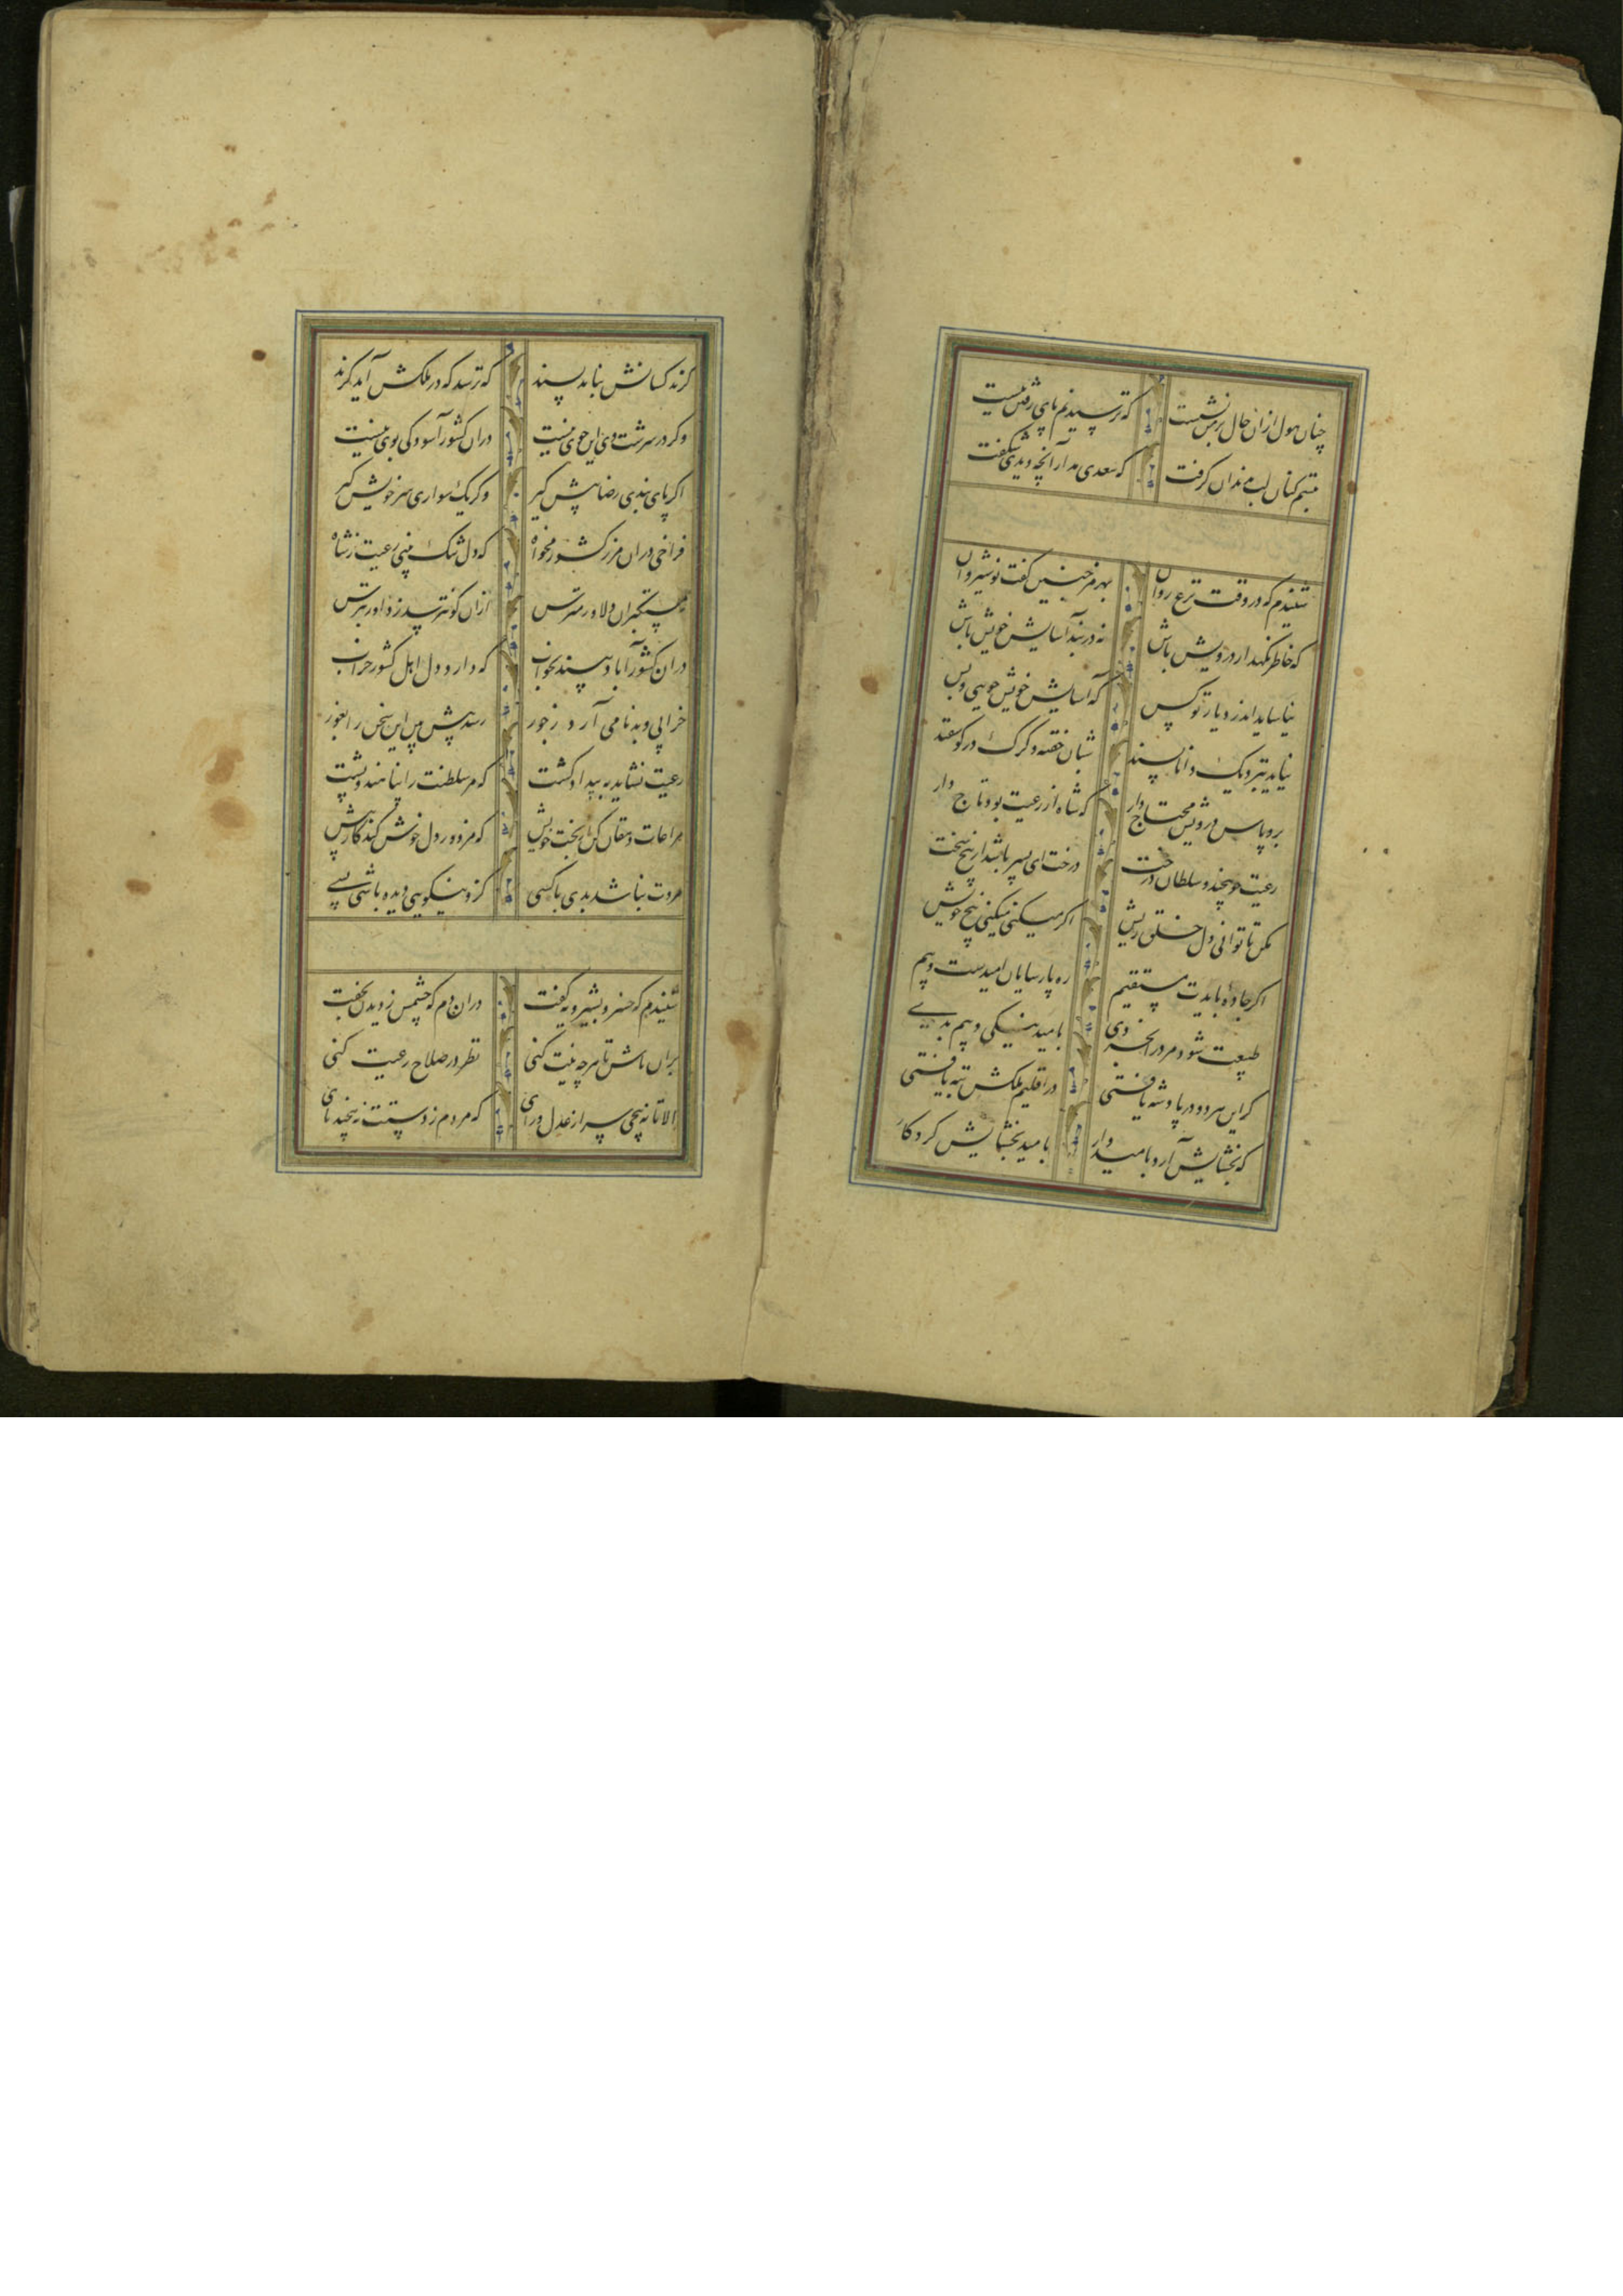 چنان هول ازان حال بر من نشست که ترسیدنم پای رفتن ببست
تبسم کنان لب بدندان گرفت که سعدی مدار آنچه دیدی شگفت
شنیدم که در وقت نزع روان بهرمز چنین گفت نوشیروان
که خاطر نگهدار درویش باش نه در بند آسایش خویش باش
نیاساید اندر دیار تو کس که آسایش خویش جویی و بس
نیاید بنزدیک دانا پسند شبان خفته و گرگ در گوسفند
برو پاس درویش محتاج دار که شاه از رعیت بود تاج دار
رعیت چو بیخند و سلطان درخت درخت ای پسر باشد از بیخ سخت
مکن تا توانی دل خلق ریش اگر میکنی میکنی بیخ خویش
اگر جاده بایدت مستقیم ره پارسایان امیدست و بیم
طبیعت شود مرد را بخردی بامید نیکی و بیم بدی
گر این هر دو در پادشه یافتی در اقلیم ملکش پنه یافتی
که بخشایش آرد بامیدوار بامید بخشایش کردگار
گزند کسانش نیاید پسند که ترسد که در ملکش آید گزند
وگر در سرشت وی این خوی نیست دران کشور آسودگی بوی نیست
اگر پای بندی رضا پیش گیر وگر یک سواری سر خویش گیر
فراخی دران مرز کشور مخواه که دل تنگ بینی رعیت ز شاه
ز مستکبران دلاور بترس ازان کو نترسد ز داور بترس
دران کشور آباد بیند بخواب که دارد دل اهل کشور خراب
خرابی و بدنامی آرد ز جور رسد پیش بین این سخن را بغور
رعیت نشاید به بیداد کشت که مر سلطنت را پناهند و پشت
مراعات دهقان کن از بخت خویش که مزدور دل خوش کند کار بیش
مروت نباشد بدی با کسی کزو نیکویی دیده باشی بسی
شنیدم که خسرو بشیرویه گفت دران دم که چشمش ز دیدن بخفت
بران باش تا هر چه نیت کنی نظر در صلاح رعیت کنی
الا تا نپیچی سر از عدل و رای که مردم ز دستت نپیچند پای